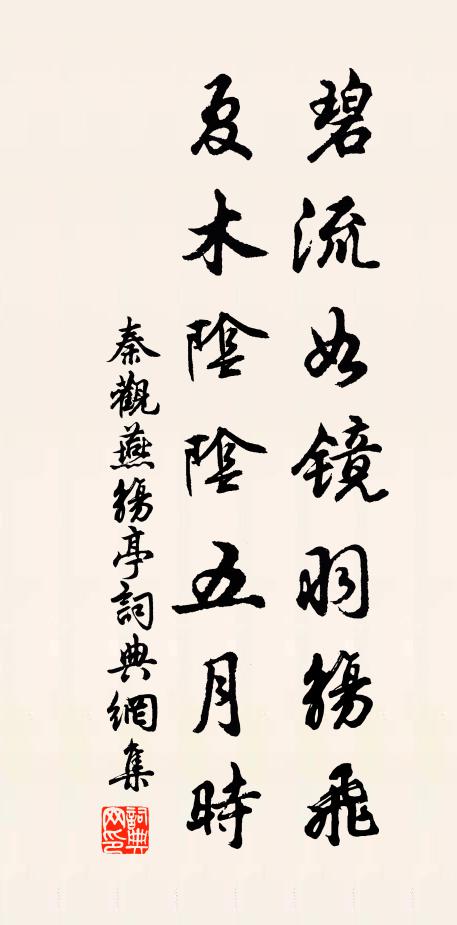 碧流如鏡羽觴飛
夏木陰陰五月時
秦觀燕觴亭詞典網集
詞典网印